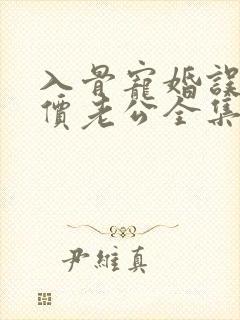 入骨寵婚誤
價老公全集
尹維真